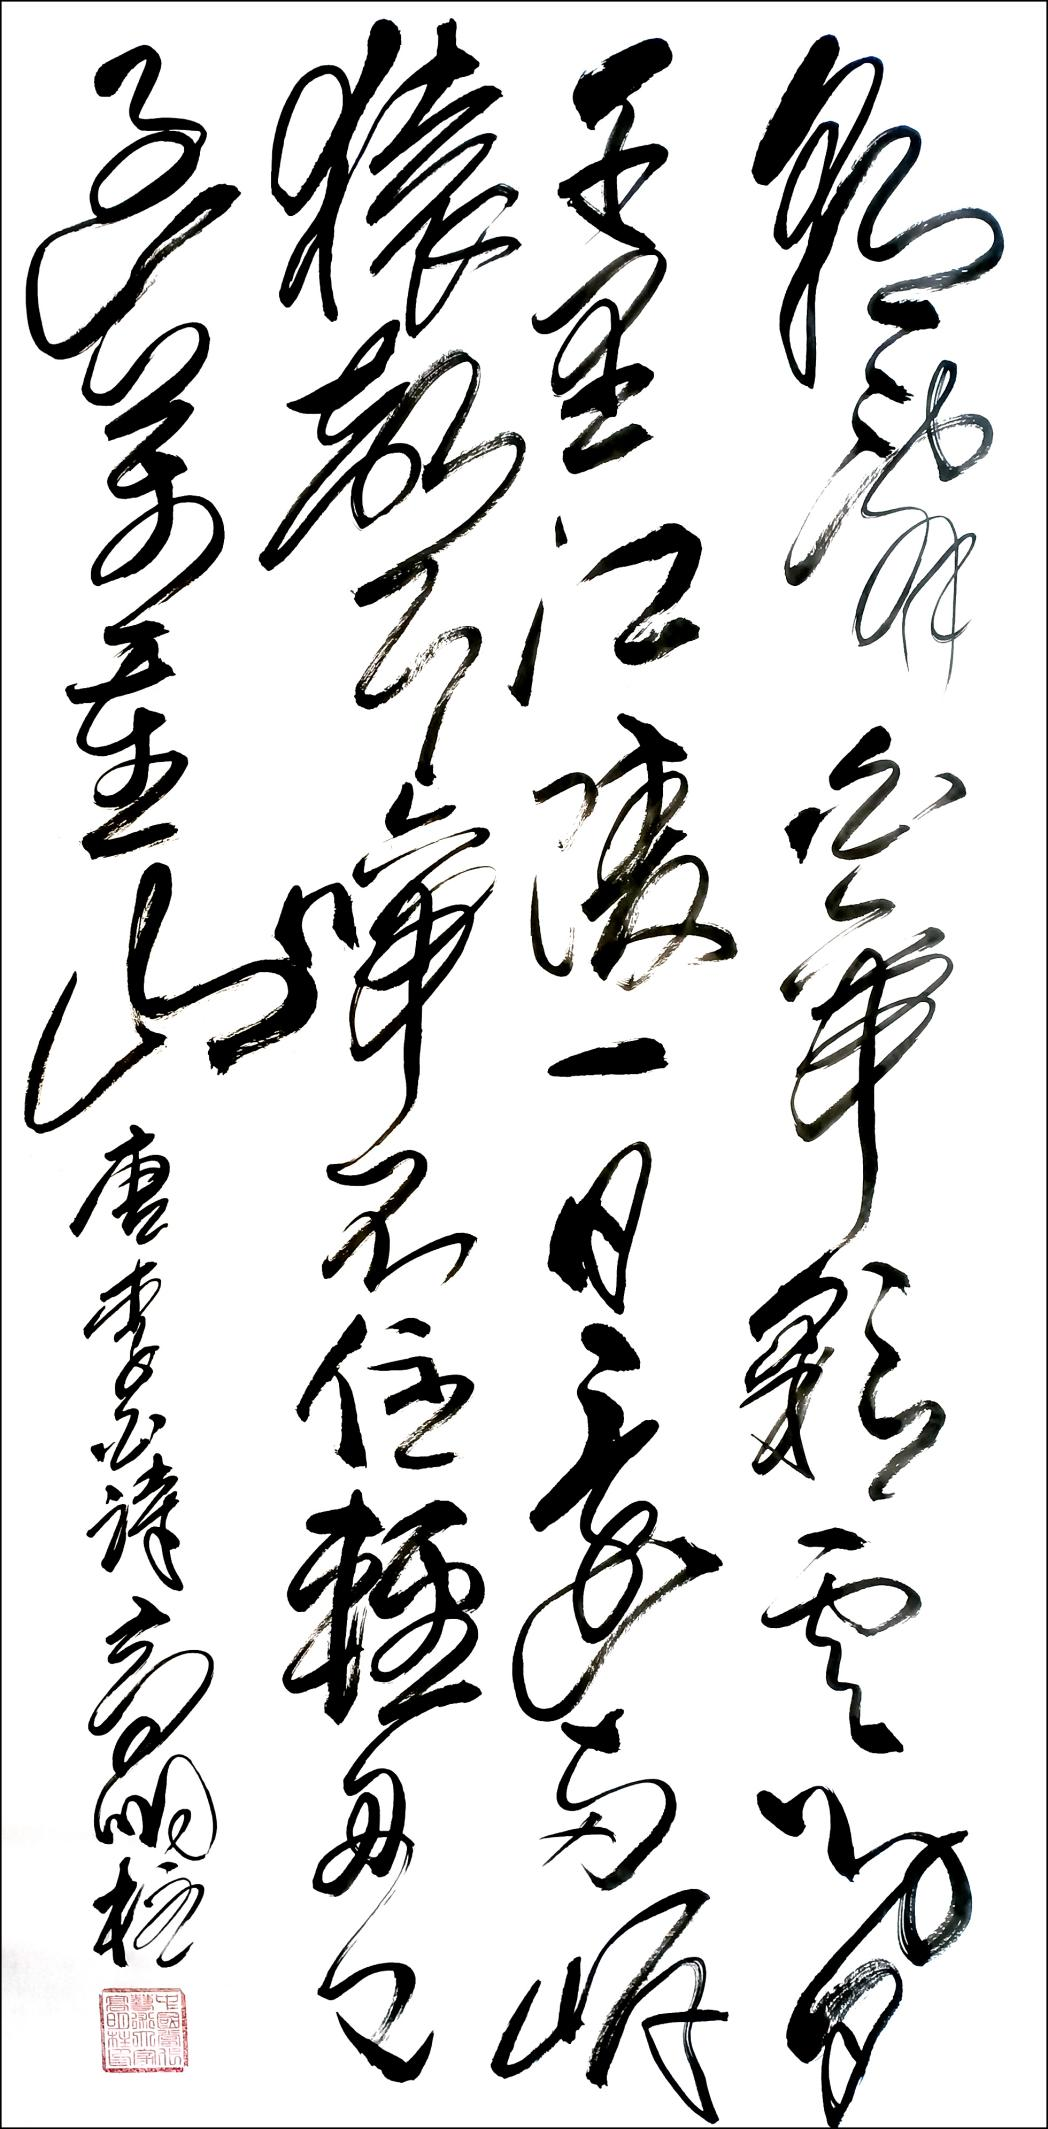 朝辭白帝彩雲間
千里江陵一日還兩岸
猿聲啼不住輕舟已
過萬重山 唐李白詩 高明柱